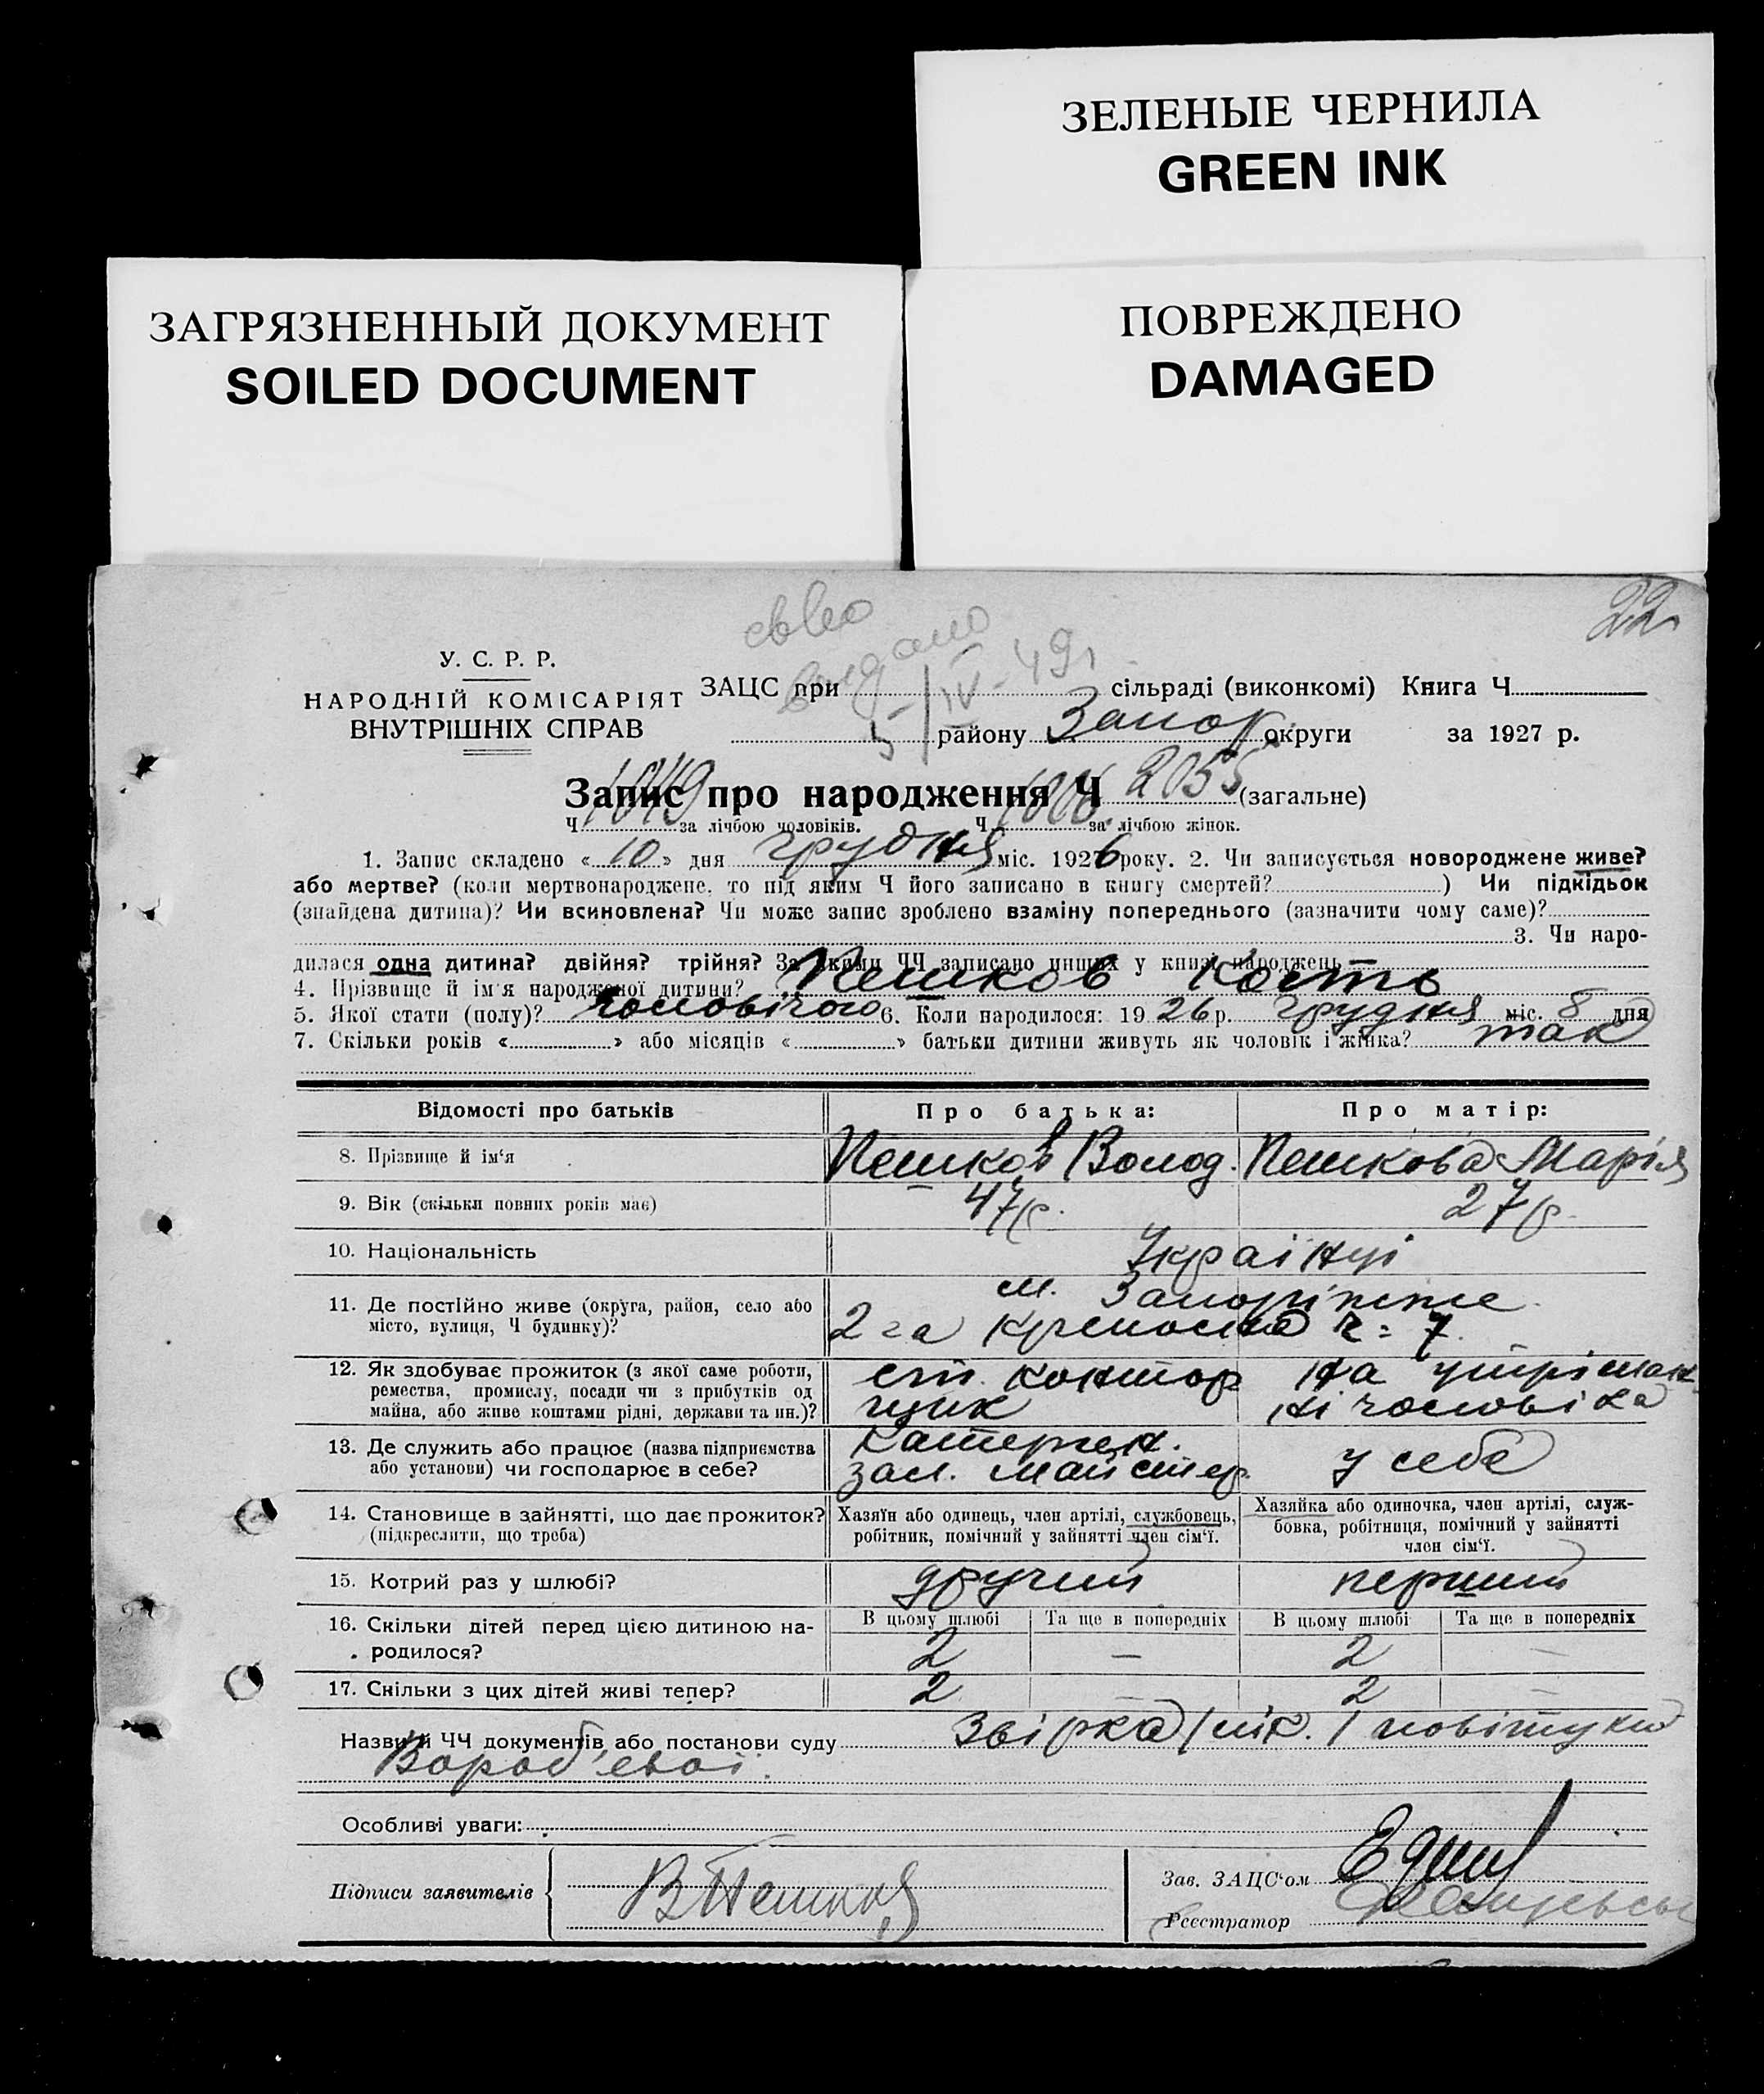 ЗЕЛЕНЫЕ ЧЕРНИЛА
GREEN INK
ЗАГРЯЗНЕННЫЙ ДОКУМЕНТ
SOILED DOCUMENT
ПОВРЕЖДЕНО
DAMAGED
22
св-во
видано
5/IV-49г
У. С. Р. Р.
НАРОДНІЙ КОМІСАРІЯТ
ВНУТРІШНІХ СПРАВ
ЗАЦС при сільраді (виконкомі) Книга Ч
району Запор округи за 1927 р.
Запис про народження Ч 2055 (загальне)
Ч 1049 за лічбою чоловіків. Ч 1006 за лічбою жінок.
1. Запис складено « 10 » дня грудня міс. 1926 року. 2. Чи записується новороджене живе?
або мертве? (коли мертвонароджене, то під яким Ч його записано в книгу смертей? ) Чи підкідьок
(знайдена дитина)? Чи всиновлена? Чи може запис зроблено взаміну попереднього (зазначити чому саме)?
3. Чи наро-
дилася одна дитина? двійня? трійня? За якими ЧЧ записано инших у книзі народжень
4. Прізвище й ім'я народженої дитини? Пешков Кость
5. Якої стати (полу)? чоловічого 6. Коли народилося: 1926 р. грудня міс. 8 дня
7. Скільки років « » або місяців « » батьки дитини живуть як чоловік і жінка? так
Відомості про батьків Про батька: Про матір:
8. Прізвище й ім'я Пешков Волод. Пешкова Марія
9. Вік (скільки повних років має) 47р. 27р.
10. Національність Українці
11. Де постійно живе (округа, район, село або м. Запоріжже
місто, вулиця, Ч будинку)? 2га Крепосна Ч= 7.
12. Як здобуває прожиток (з якої саме роботи, ст. контор на утріман
ремества, промислу, посади чи з прибутків од щик ні чоловіка
майна, або живе коштами рідні, держави та ин.)?
13. Де служить або працює (назва підприємства Катерен. у себе
або установи) чи господарює в себе? зал. майстер
14. Становище в зайнятті, що дає прожиток? Хазяїн або одинець, член артілі, службовець, Хазяйка або одиночка, член артілі, служ-
(підкреслити, що треба) робітник, помічний у зайнятті член сім'ї. бовка, робітниця, помічний у зайнятті
член сім'ї.
15. Котрий раз у шлюбі? другий перший
16. Скільки дітей перед цією дитиною на- В цьому шлюбі Та ще в попередніх В цьому шлюбі Та ще в попередніх
родилося? 2 — 2 —
17. Скільки з цих дітей живі тепер? 2 — 2 —
Назви й ЧЧ документів, або постанови суду Звірка повітухи
Вороб'євої.
Особливі уваги:
Підписи заявителів В Пешков
Зав. ЗАЦС'ом
Реєстратор